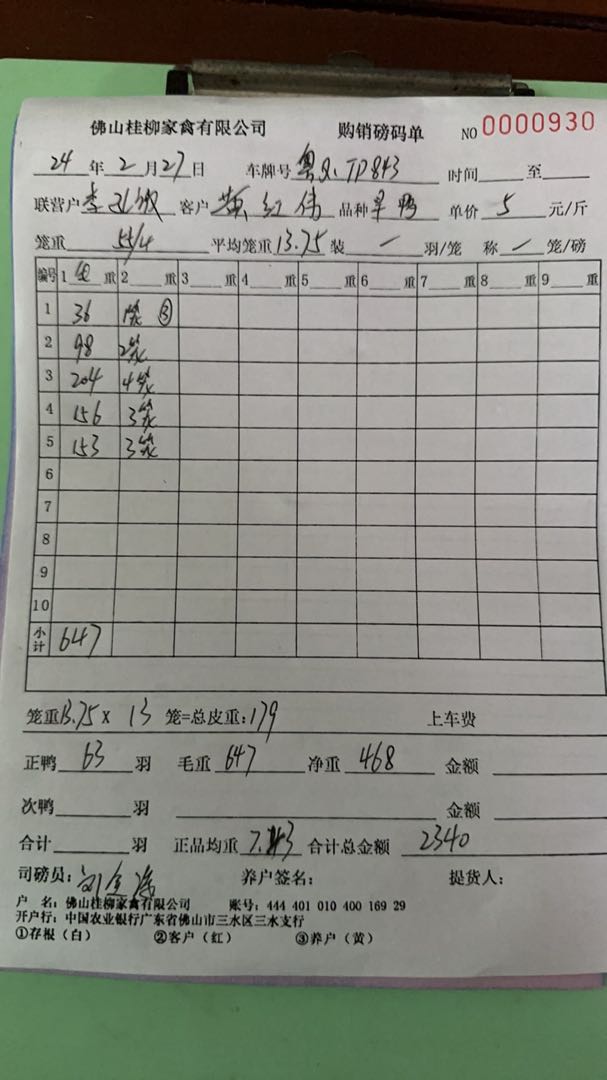 佛山桂柳家禽有限公司 购销磅码单 NO 0000930
24 年 2 月 27 日 车牌号 粤 TP843 时间 至
联营户 李 客户 黄红伟 品种 旱鸭 单价 5 元/斤
笼重 55/4 平均笼重 13.75 装 一 羽/笼 称 一 笼/磅
编号 1 重 2 重 3 重 4 重 5 重 6 重 7 重 8 重 9 重
1 36 1笼 ③
2 98 2笼
3 204 4笼
4 156 3笼
5 153 3笼
6
7
8
9
10
小计 647
笼重 13.75 x 13 笼=总皮重: 179 上车费
正鸭 63 羽 毛重 647 净重 468 金额
次鸭 羽 金额
合计 羽 正品均重 7.43 合计总金额 2340
司磅员: 刘 养户签名: 提货人:
户 名: 佛山桂柳家禽有限公司 账号: 444 401 010 400 169 29
开户行: 中国农业银行广东省佛山市三水区三水支行
①存根（白） ②客户（红） ③养户（黄）